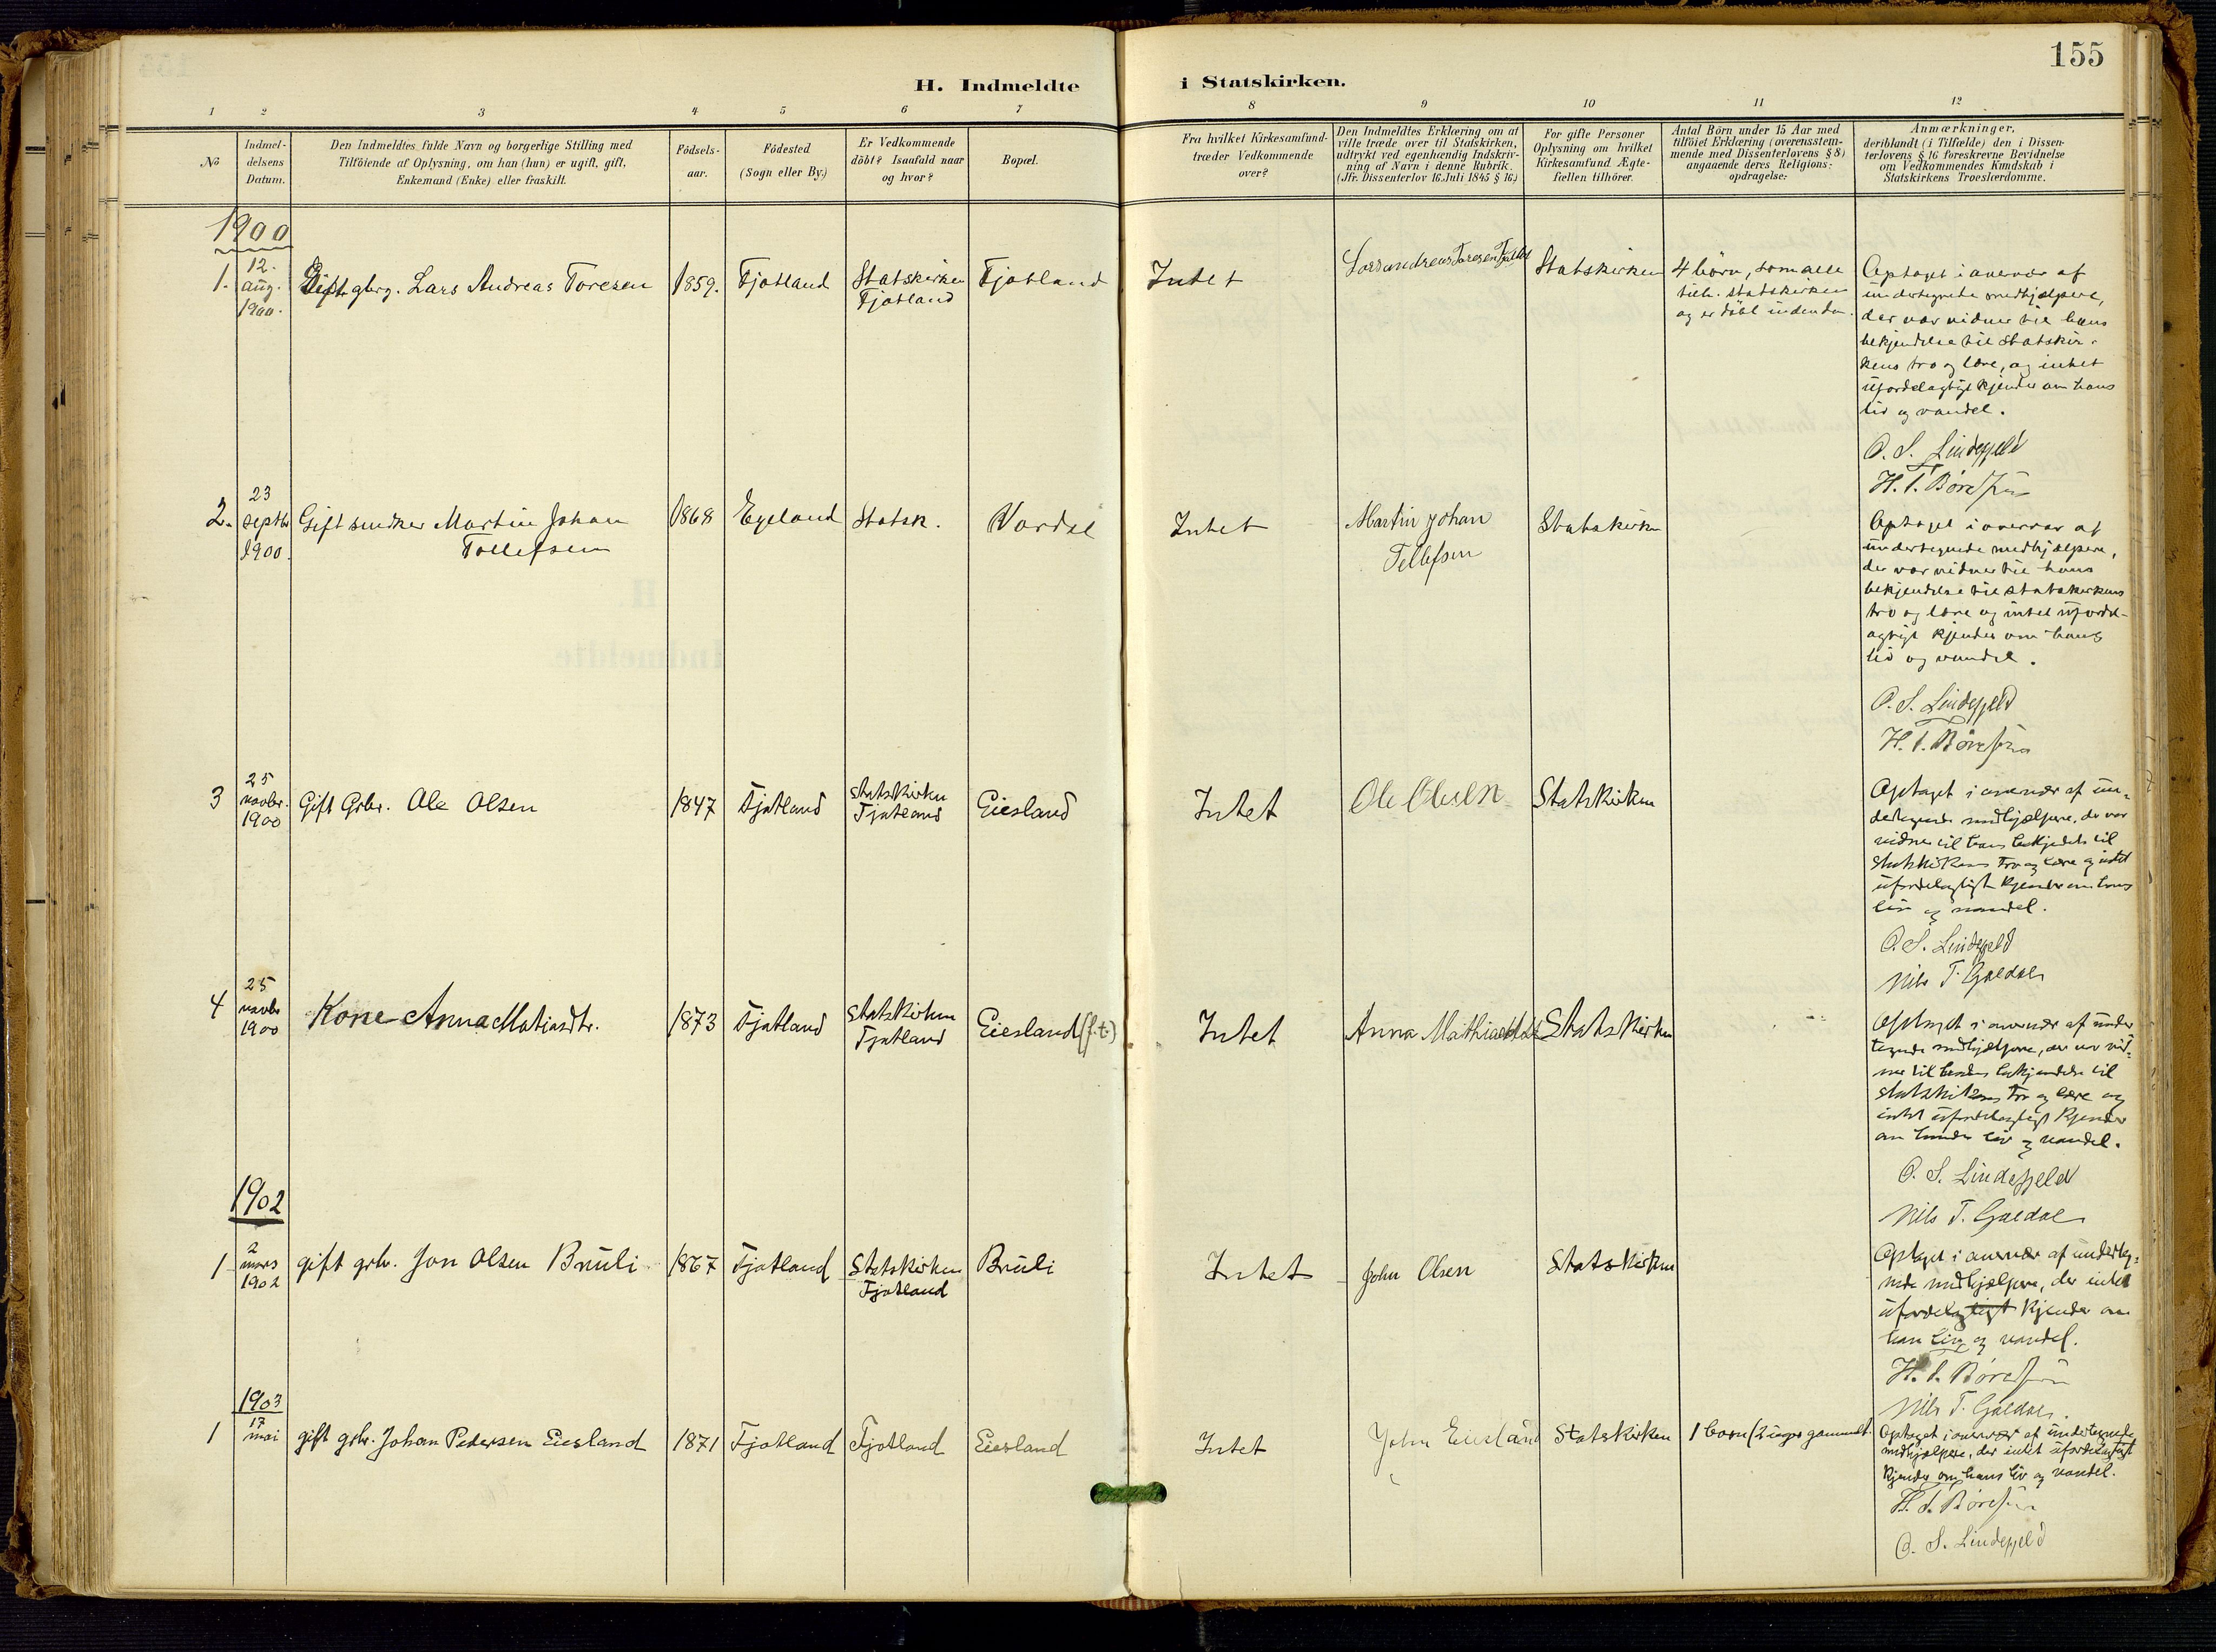 155
H. Indmeldte i Statskirken.
1 2 3 4 5 6 7 8 9 10 11 12
No
Indmel-
delsens
Datum.
Den Indmeldtes fulde Navn og borgerlige Stilling med
Tilföiende af Oplysning, om han (hun) er ugift, gift,
Enkemand (Enke) eller fraskilt.
Födsels-
aar.
Födested
(Sogn eller By.)
Er Vedkommende
döbt? Isaafald naar
og hvor?
Bopæl.
Fra hvilket Kirkesamfund-
træder Vedkommende
over?
Den Indmeldtes Erklæring om at
ville træde over til Statskirken,
udtrykt ved egenhændig Indskriv-
ning af Navn i denne Rubrik.
(Jfr. Dissenterlov 16. Juli 1845 § 16)
For gifte Personer
Oplysning om hvilket
Kirkesamfund Ægte-
fællen tilhörer.
Antal Börn under 15 Aar med
tilföiet Erklæring (overensstem-
mende med Dissenterlovens § 8)
angaaende deres Religions-
opdragelse:
Anmærkninger,
deriblandt (i Tilfælde) den i Dissen-
terlovens § 16 foreskrevne Bevidnelse
om Vedkommendes Kundskab i
Statskirkens Troeslærdomme.
1900
1.
12.
aug.
1900.
Gift gbrg. Lars Andreas Toresen
1859.
Fjotland
Statskirken
Fjotland
Fjotland
Intet
Lars Andreas Toresen
Statskirken
4 börn, som alle
tilh. statskirken
og er döbt inden den.
Optaget i overvær af
undertegnede medhjælpere,
der var vidner til hans
bekjendelse til statskir-
kens tro og lære, og intet
ufordelagtigt kjender om hans
liv og vandel.
O. S. Lindefjeld
H. T. Böresen
2.
23
septbr
1900.
Gift snedker Martin Johan
Tollefsen
1868
Egeland
Statsk.
Vordal
Intet
Martin Johan
Tellefsen
Statskirken
Optaget i overvær af
undertegnede medhjælpere,
der var vidner til hans
bekjendelse til statskirkens
tro og lære og intet uforde-
agtigt kjender om hans
liv og vandel.
O. S. Lindefjeld
H. T. Böresen
3
25
novbr.
1900
Gift Grbr. Ole Olsen
1847
Fjotland
Statskirken
Fjotland
Eiesland
Intet
Ole Olsen
Statskirken
Optaget i overvær af un-
dertegnede medhjælpere, der var
vidner til hans bekjendelse til
statskirkens tro og lære og intet
ufordelagtigt kjender om hans
liv og vandel.
O. S. Lindefjeld
Nils T. Galdal
4
25
novbr
1900
Kone Anna Matiasdtr.
1873
Fjotland
Statskirken
Fjotland
Eiesland (f.t.)
Intet
Anna
Statskirken
Optaget i overvær af under
tegnede medhjælpere, der var vid-
ner til hendes bekjendelse til
statskirkens tro og lære og
intet ufordelagtigt kjender
om hendes liv og vandel.
O. S. Lindefjeld
Nils T. Galdal
1902
1
2
mars
1902
gift grbr. Jon Olsen Bruli
1867
Fjotland
Statskirken
Fjotland
Bruli
Intet
John Olsen
Statskirken
Optaget i overvær af underteg-
nede medhjælpere, der intet
ufordelagtigt kjender om
hans liv og vandel.
H. T. Böresen
Nils T. Galdal.
1903
1
17
mai
gift grbr. Johan Pedersen Eiesland
1871
Fjotland
Fjotland
Eiesland
Intet
John Eiesland
Statskirken
1 barn (2 uger gammelt.
Optaget i overvær af undertegnede
medhjælpere, der intet ufordelagtigt
kjender om hans liv og vandel.
H. T. Böresen
O. S. Lindefjeld